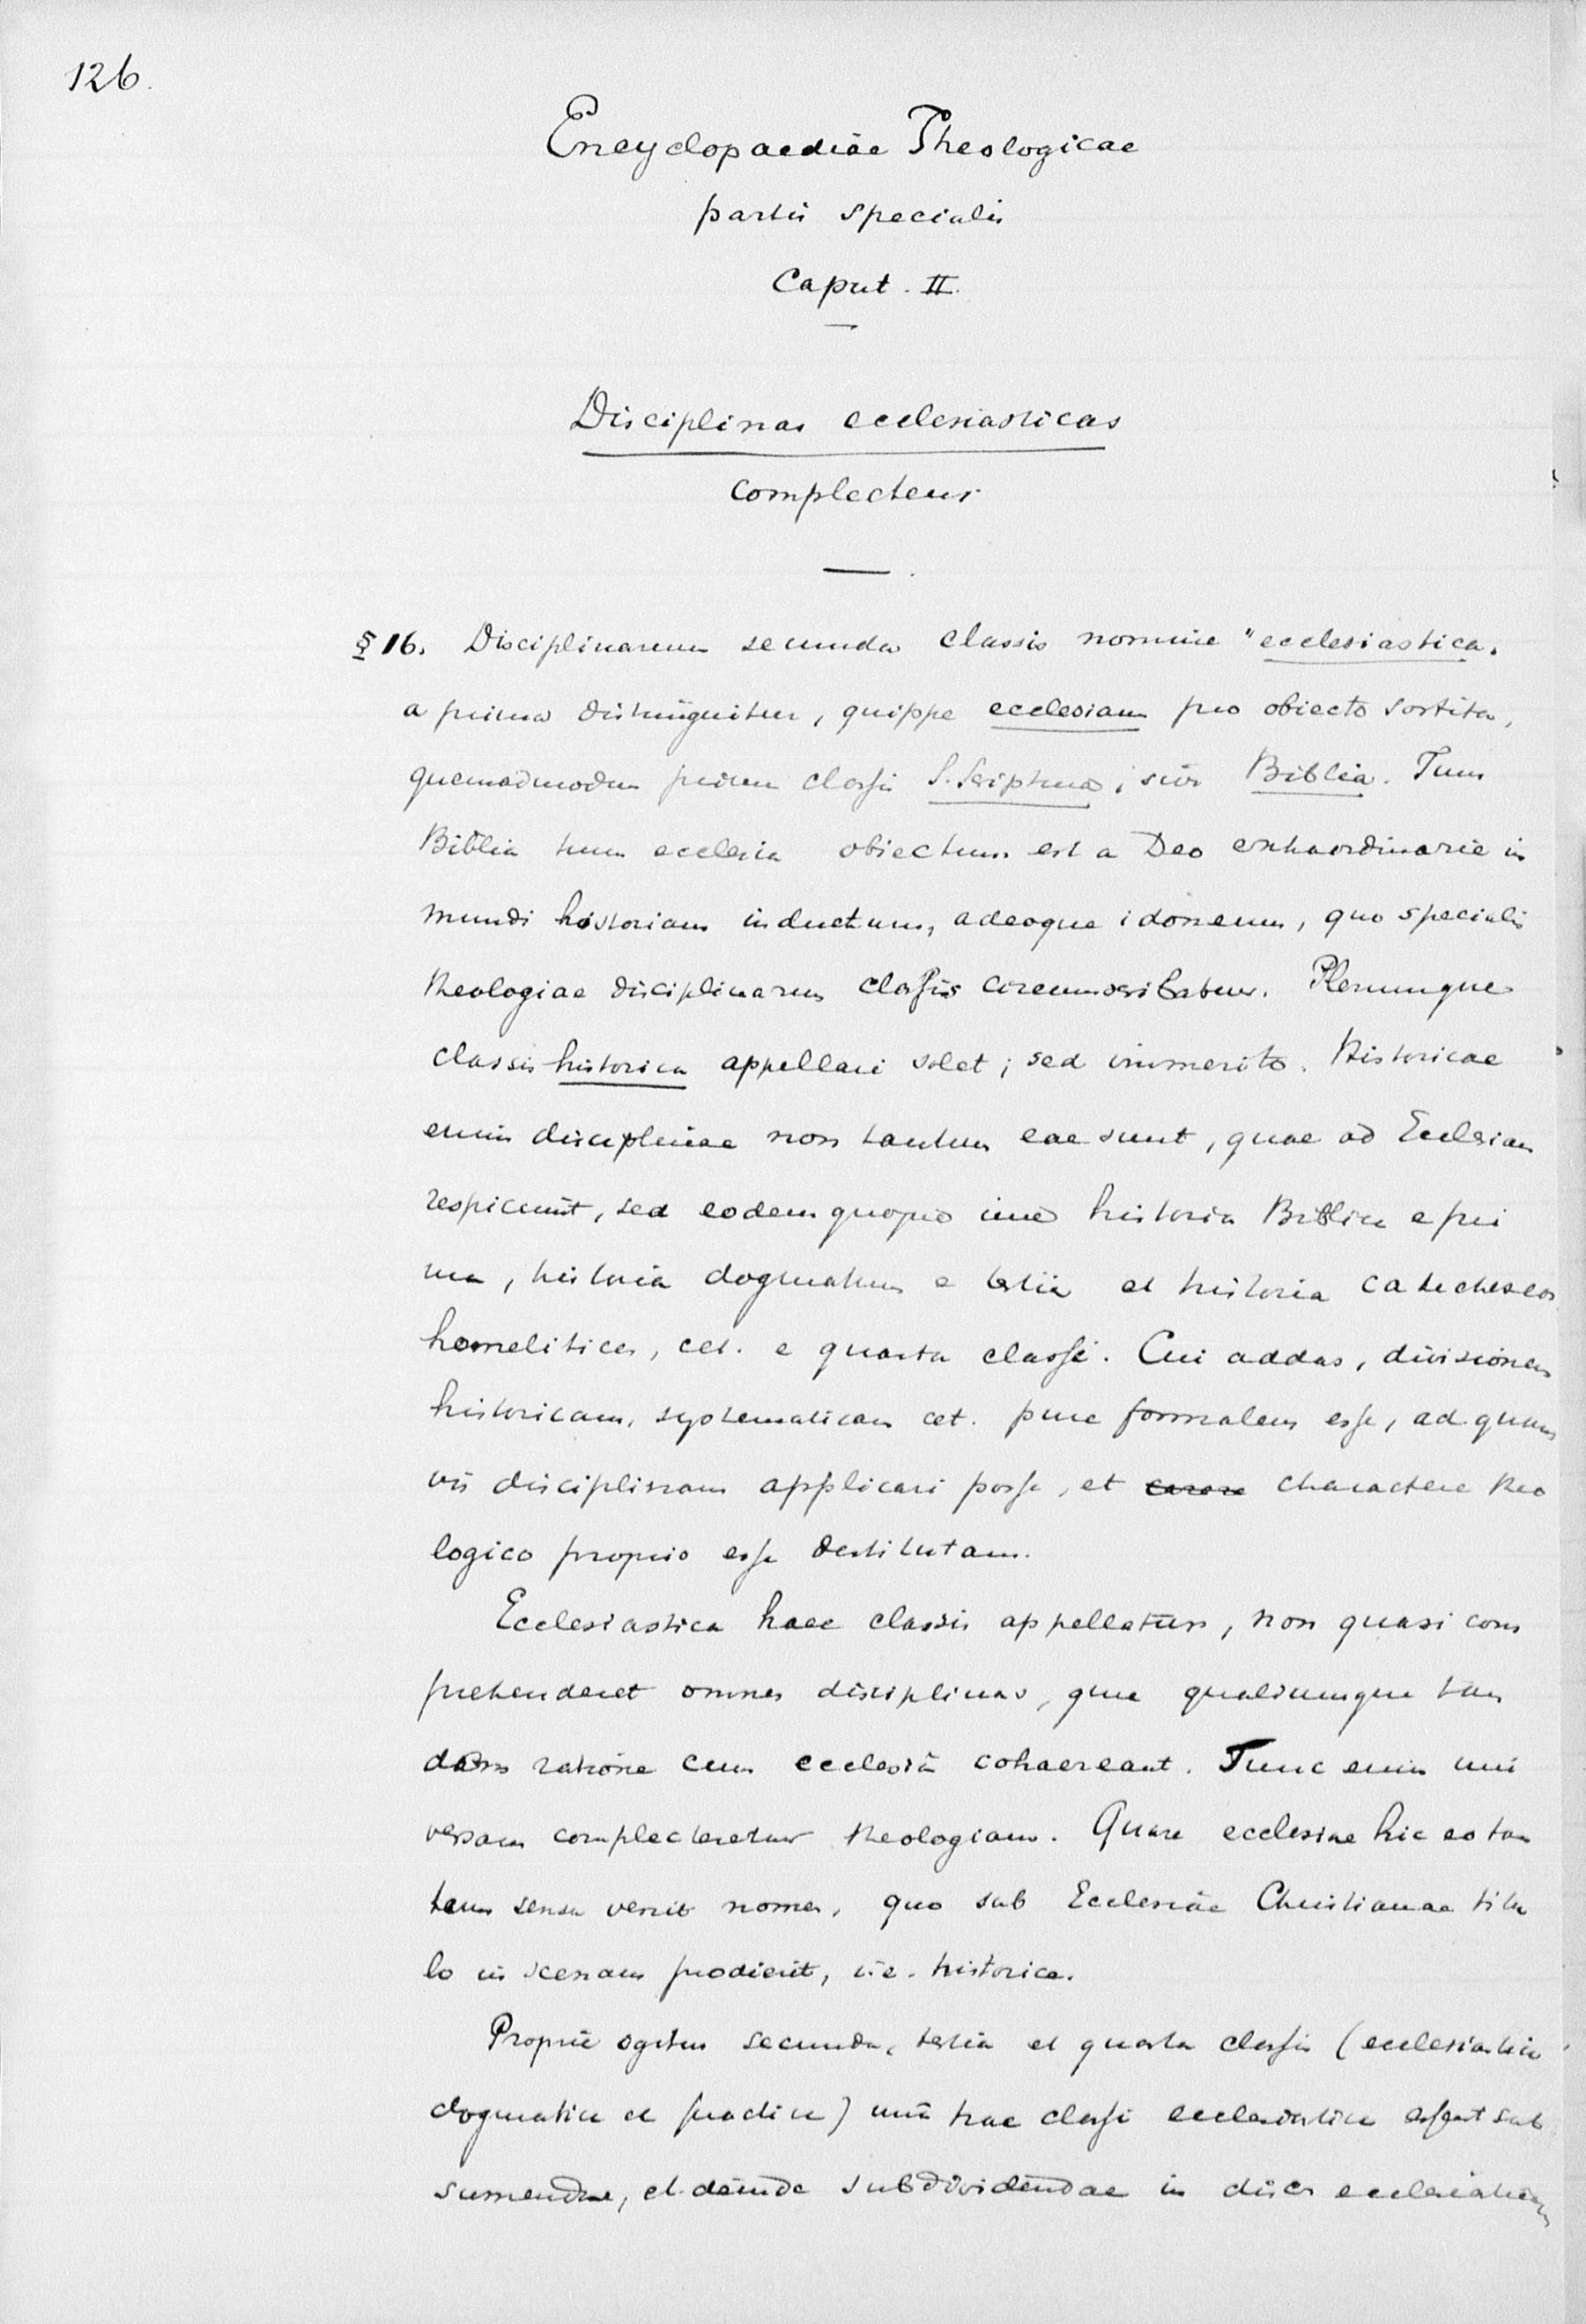 126.
Encyclopaediae Theologicae
partis specialis
Caput. II.
Disciplinas ecclesiasticas
complectens
§ 16. Disciplinarum secunda classis nomine "ecclesiastica"
a prima distinguitur, quippe ecclesiam pro obiecto sortita,
quemadmodum prima classis S. Scriptura, sive Biblia. Tum
Biblia tum ecclesia obiectum est a Deo extraordinarie in
mundi historiam inductum, adeoque idoneum, quo specialis
theologiae disciplinarum classis circumscribatur. Plerumque
classis historica appellari solet; sed immerito. Historicae
enim disciplinae non tantum eae sunt, quae ad Ecclesiam
respiciunt, sed eodem iure historia Biblica e pri
ma, historia dogmatum e tertia et historia catecheseos
homelitices, cet. e quarta classe. Cui addas, divisionem
historicam, systematicam cet. pure formalem esse, ad quam
vis disciplinam applicari posse, et charactere theo
logico proprio esse destitutam.
Ecclesiastica haec classis appellatur, non quasi com
prehenderet omnes disciplinas, quae qualicumque tan
dem ratione cum ecclesiâ cohaereant. Tunc enim uni
versam complecteretur theologiam. Quare ecclesiae hic eo tan
tum sensu venit nomen, quo sub Ecclesiae Christianae titu
lo in scenam prodierit, i.e. historice.
Proprie secunda, tertia et quarta classis (ecclesiastica
dogmatica et practica) uni hae classi ecclesiastica essent sub
sumendae, et deinde subdividendae in disc. ecclesiasticam